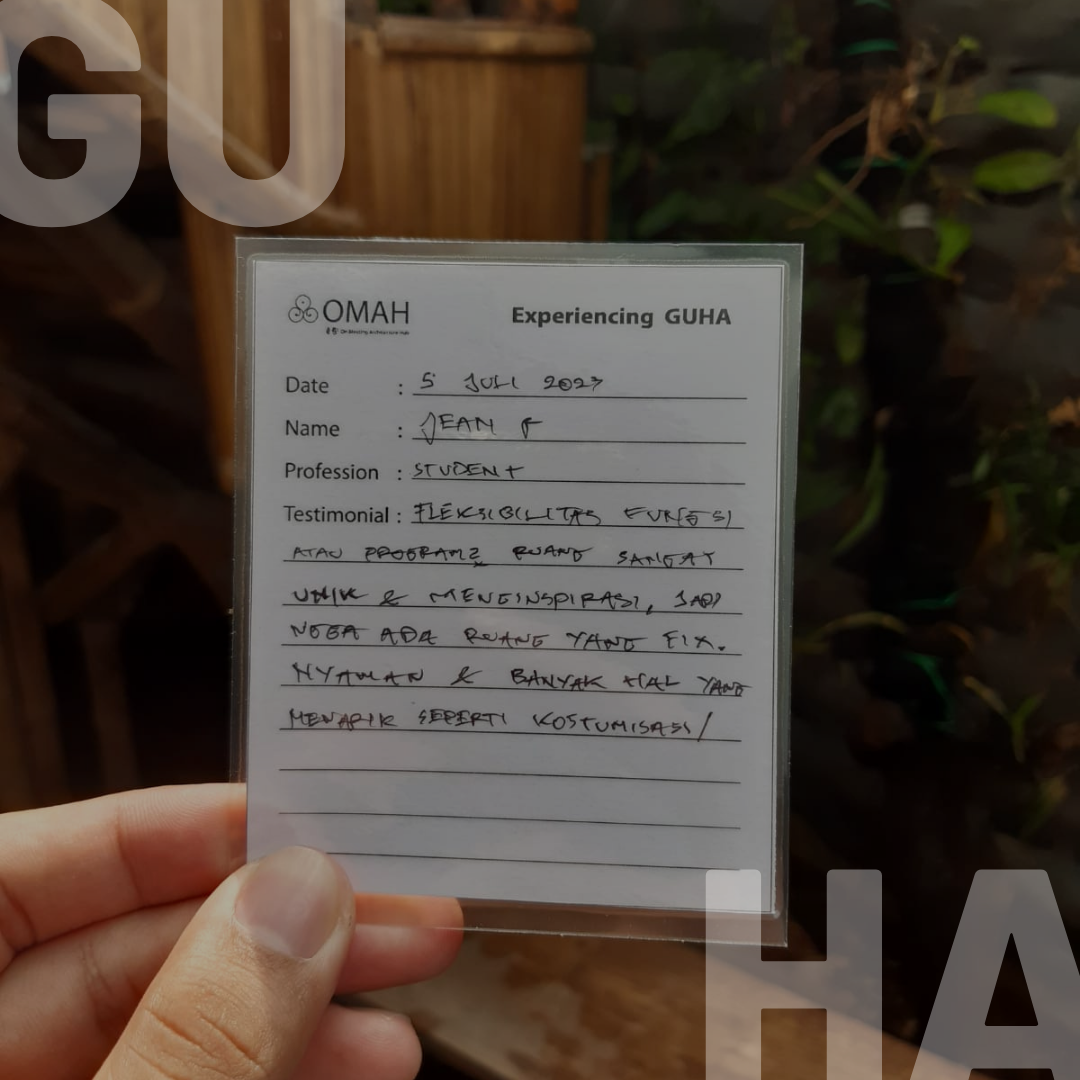 GU
OMAH
Experiencing GUHA
Date : 5 JULI 2023
Name : JEAN F
Profession : STUDENT
Testimonial : FLEKSIBILITAS FUNGSI
ATAU PROGRAM2 RUANG SANGAT
UNIK & MENGINSPIRASI, JADI
NGGA ADA RUANG YANG FIX.
NYAMAN & BANYAK HAL YANG
MENARIK SEPERTI KOSTUMISASI/
HA